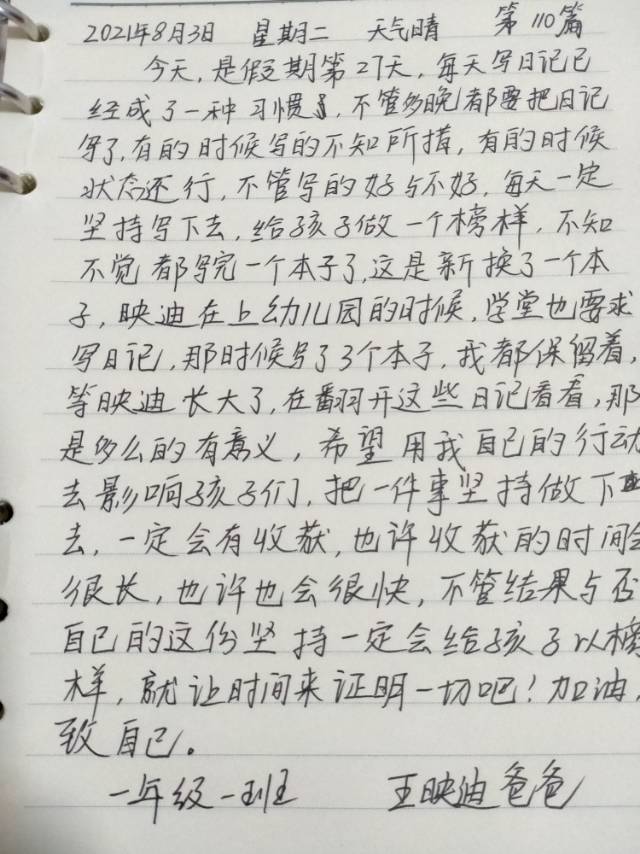 2021年8月3日 星期二 天气晴 第110篇
今天,是假期第27天,每天写日记已
经成了一种习惯了,不管多晚都要把日记
写了,有的时候写的不知所措,有的时候
状态还行,不管写的好与不好,每天一定
坚持写下去,给孩子做一个榜样,不知
不觉都写完一个本子了,这是新换了一个本
子,映迪在上幼儿园的时候,学堂也要求
写日记,那时候写了3个本子,我都保留着,
等映迪长大了,在翻开这些日记看看,那
是多么的有意义,希望用我自己的行动
去影响孩子们,把一件事坚持做下
去,一定会有收获,也许收获的时间会
很长,也许也会很快,不管结果与否
自己的这份坚持一定会给孩子以榜
样,就让时间来证明一切吧!加油,
致自己。
一年级一班 王映迪爸爸